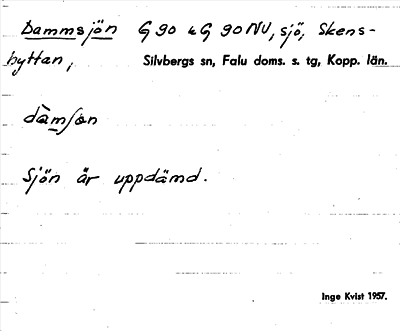 Dammsjön G 90 & G 90 NV, sjö, Skens-
hyttan, Silvbergs sn, Falu doms. s. tg, Kopp. län.
Sjön är uppdämd.
Inge Kvist 1957.